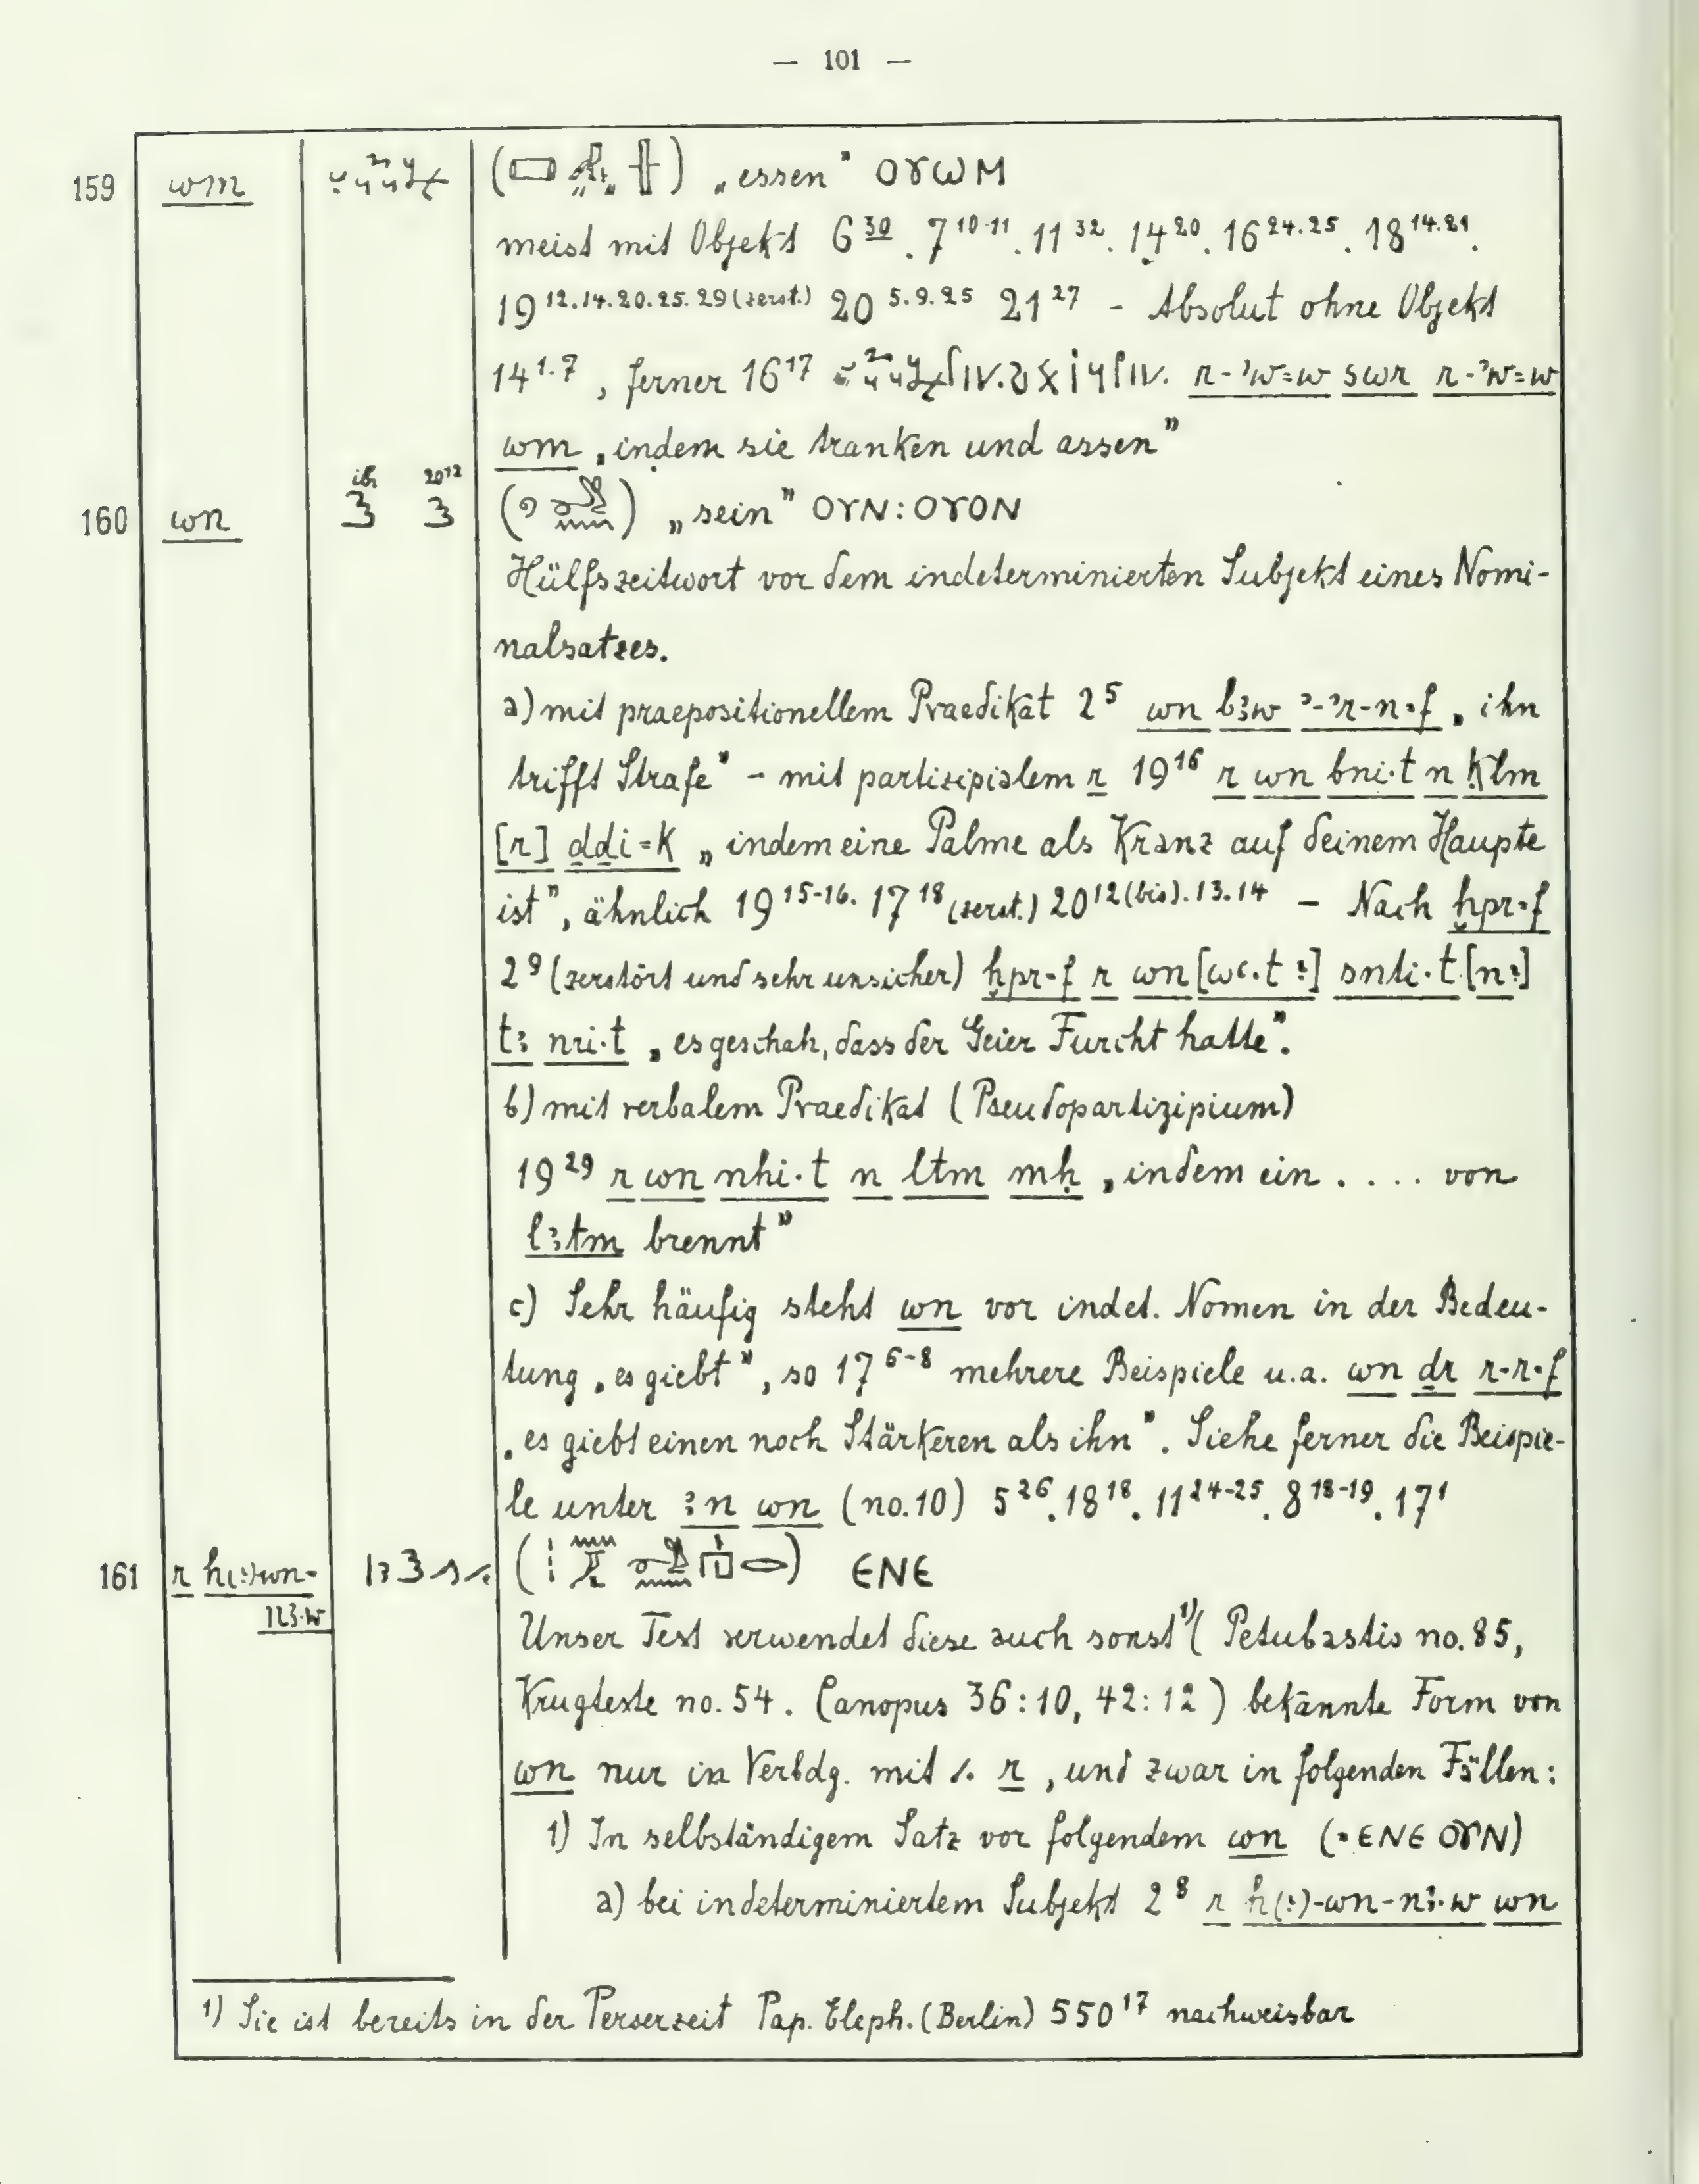 — 101 —
159 wm „essen“ ⲞⲨⲰⲘ
meist mit Objekt 6³⁰. 7¹⁰⁻¹¹. 11³². 14²⁰. 16²⁴·²⁵. 18¹⁴·²¹.
19¹²·¹⁴·²⁰·²⁵·²⁹ (zerst.) 20⁵·⁹·²⁵ 21²⁷ - Absolut ohne Objekt
14¹·⁷, ferner 16¹⁷ r-ʾw=w swr r-ʾw=w
wm „indem sie tranken und assen”
ib. 20¹²
160 wn „sein” ⲞⲨⲚ: ⲞⲨⲞⲚ
Hülfszeitwort vor dem indeterminierten Subjekt eines Nomi-
nalsatzes.
a) mit praepositionellem Praedikat 2⁵ wn bꜣw ʾ-ʾr-n=f „ihn
trifft Strafe” - mit partizipialem r 19¹⁶ r wn bni·t n ḳlm
[r] ḏḏi=k „indem eine Palme als Kranz auf deinem Haupte
ist”, ähnlich 19¹⁵⁻¹⁶. 17¹⁸ (zerst.) 20¹² (bis)·¹³·¹⁴ - Nach ḫpr=f
2⁹ (zerstört und sehr unsicher) ḫpr=f r wn [wꜥ·t ?] snti·t [n?]
tꜣ nri·t „es geschah, dass der Geier Furcht hatte”.
b) mit verbalem Praedikat (Pseudopartizipium)
19²⁹ r wn nhi·t n ltm mḥ „indem ein .... von
lꜣtm brennt”
c) Sehr häufig steht wn vor indet. Nomen in der Bedeu-
tung „es giebt”, so 17⁶⁻⁸ mehrere Beispiele u.a. wn ḏr r-r=f
„es giebt einen noch Stärkeren als ihn”. Siehe ferner die Beispie-
le unter ꜣn wn (no. 10) 5²⁶. 18¹⁸. 11²⁴⁻²⁵. 8¹⁸⁻¹⁹. 17¹
161 r h(ꜣ)-wn- ⲈⲚⲈ
nꜣ·w
Unser Text verwendet diese auch sonst¹⁾ (Petubastis no. 85,
Krugtexte no. 54. Canopus 36:10, 42:12) bekannte Form von
wn nur in Verbdg. mit r, und zwar in folgenden Fällen:
1) In selbständigem Satz vor folgendem wn (= ⲈⲚⲈ ⲞⲨⲚ)
a) bei indeterminiertem Subjekt 2⁸ r h(ꜣ)-wn-nꜣ·w wn
1) Sie ist bereits in der Perserzeit Pap. Eleph. (Berlin) 550¹⁷ nachweisbar